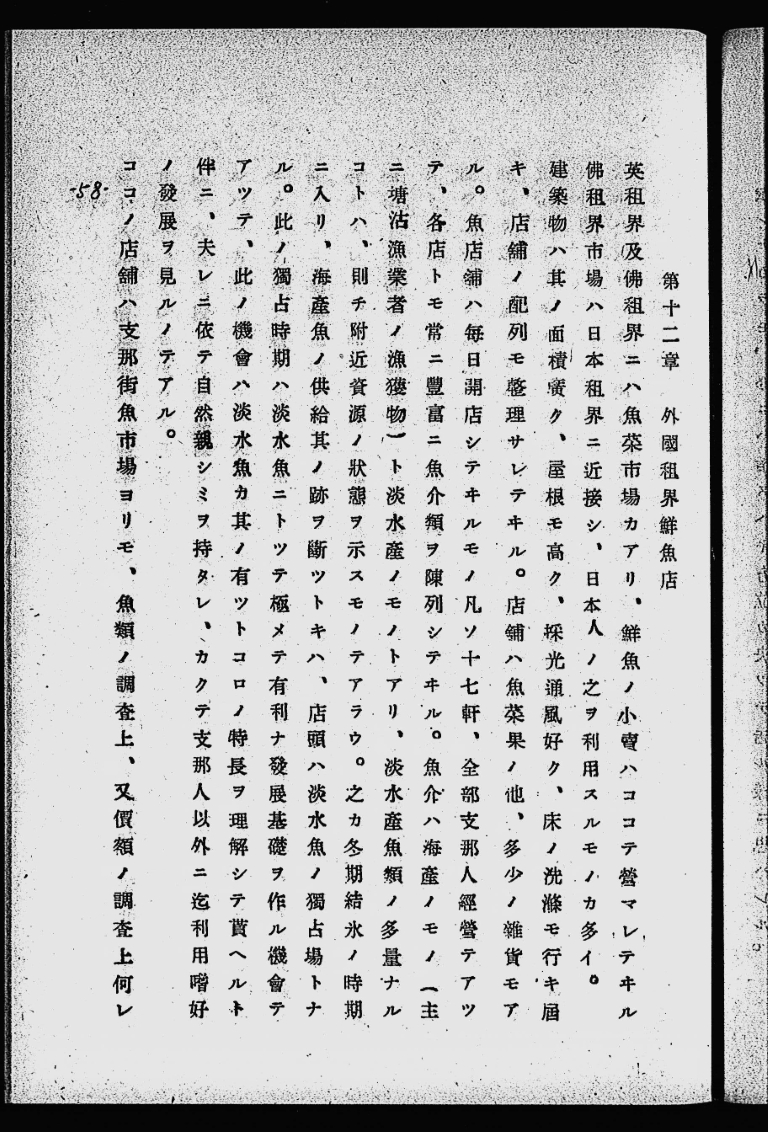 第十二章　外國租界鮮魚店
英租界及佛租界ニハ魚菜市場カアリ、鮮魚ノ小賣ハココテ營マレテヰル
佛租界市場ハ日本租界ニ近接シ、日本人ノ之ヲ利用スルモノカ多イ。
建築物ハ其ノ面積廣ク、屋根モ高ク、採光通風好ク、床ノ洗滌モ行キ屆
キ、店舖ノ配列モ整理サレテヰル。店舖ハ魚菜果ノ他、多少ノ雜貨モア
ル。魚店舖ハ每日開店シテヰルモノ凡ソ十七軒、全部支那人經營テアツ
テ、各店トモ常ニ豐富ニ魚介類ヲ陳列シテヰル。魚介ハ海產ノモノ（主
ニ塘沽漁業者ノ漁獲物）ト淡水產ノモノトアリ、淡水產魚類ノ多量ナル
コトハ、則チ附近資源ノ狀態ヲ示スモノテアラウ。之カ冬期結氷ノ時期
ニ入リ、海產魚ノ供給其ノ跡ヲ斷ツトキハ、店頭ハ淡水魚ノ獨占場トナ
ル。此ノ獨占時期ハ淡水魚ニトツテ極メテ有利ナ發展基礎ヲ作ル機會テ
アツテ、此ノ機會ハ淡水魚カ其ノ有ツトコロノ特長ヲ理解シテ貰ヘルト
伴ニ、夫レニ依テ自然親シミヲ持タレ、カクテ支那人以外ニ迄利用嗜好
ノ發展ヲ見ルノテアル。
ココノ店舖ハ支那街魚市場ヨリモ、魚類ノ調査上、又價額ノ調査上何レ
-58-